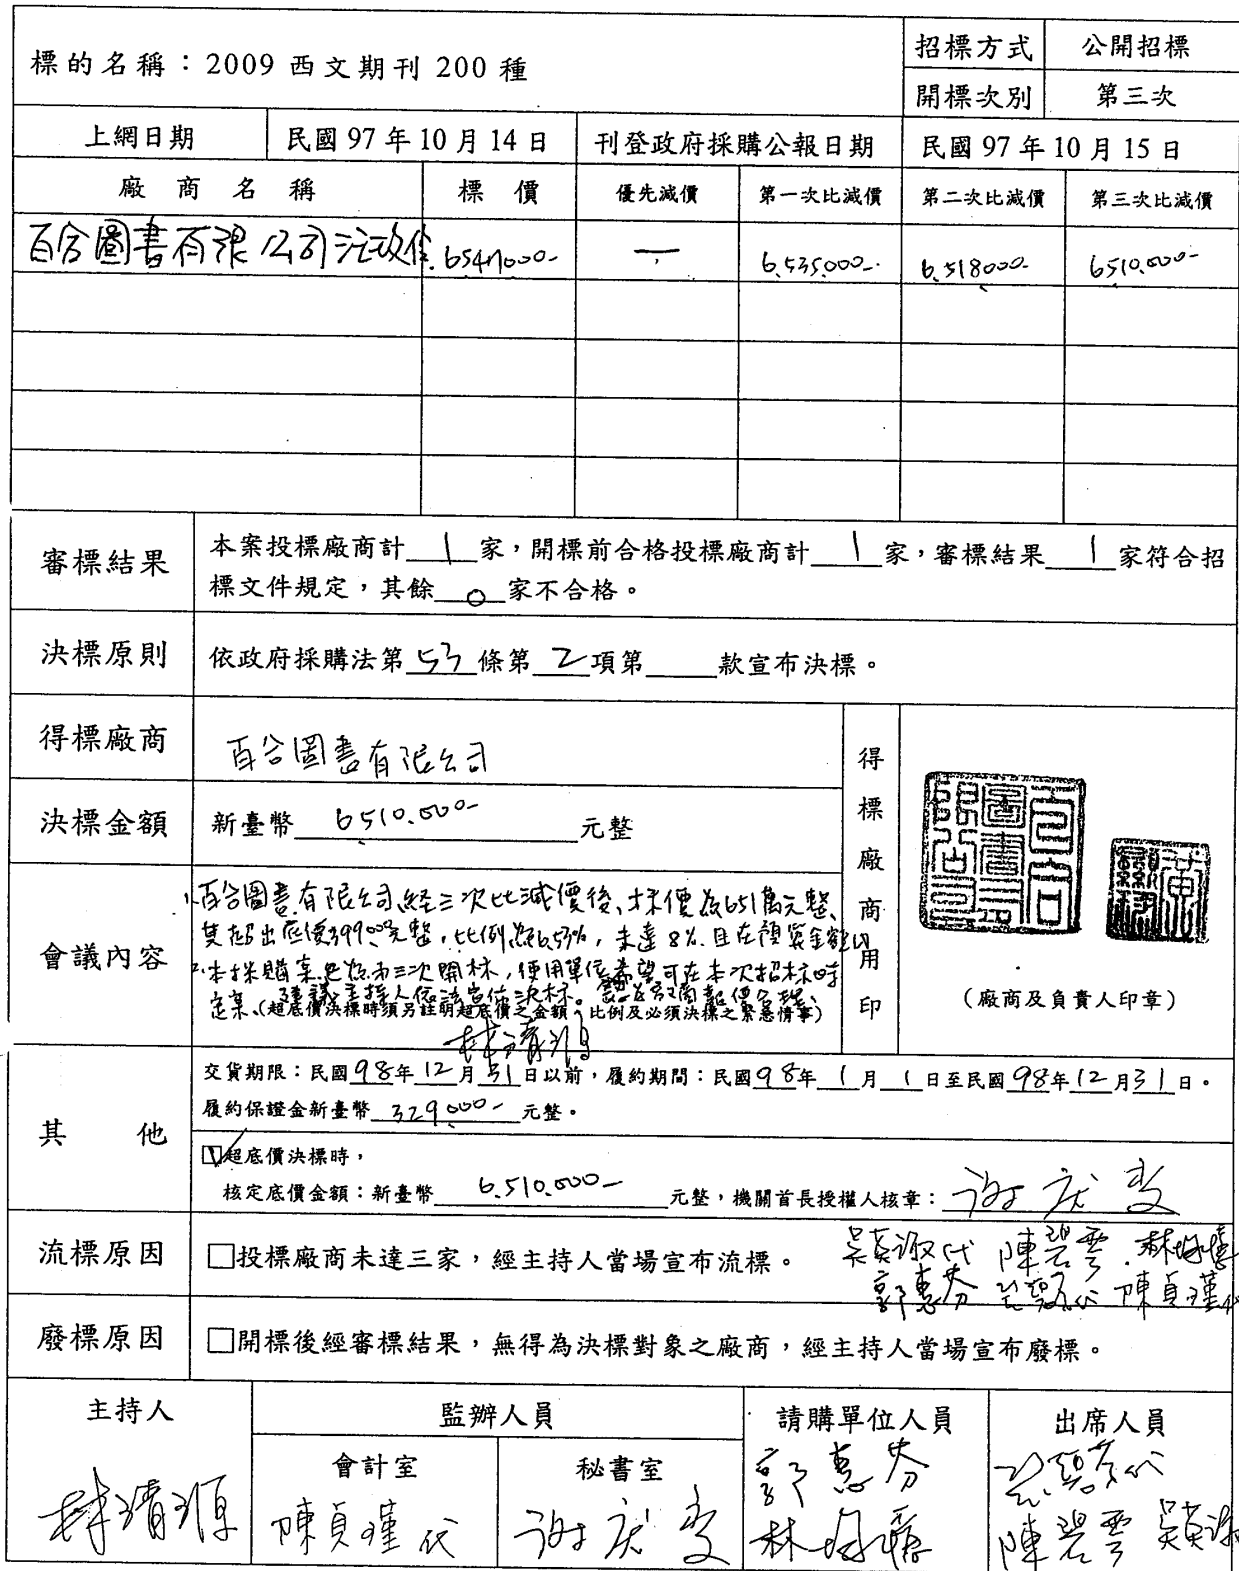 標的名稱：2009 西文期刊 200 種
招標方式 公開招標
開標次別 第三次
上網日期 民國 97 年 10 月 14 日 刊登政府採購公報日期 民國 97 年 10 月 15 日
廠商名稱 標價 優先減價 第一次比減價 第二次比減價 第三次比減價
百合圖書有限公司 — 6,535,000- 6,518,000- 6,510,000-
審標結果
本案投標廠商計 1 家，開標前合格投標廠商計 1 家，審標結果 1 家符合招
標文件規定，其餘 0 家不合格。
決標原則 依政府採購法第 53 條第 2 項第 款宣布決標。
得標廠商 百合圖書有限公司
決標金額 新臺幣 6,510,000- 元整
得標廠商用印
（廠商及負責人印章）
會議內容
1.百合圖書有限公司經三次比減價後、標價為651萬元整、
其超出底價399,000元整，比例為6.53%，未達8%，且在預算金額內
2.本採購案已為第三次開標，使用單位希望可在本次招標時
定案、建議主持人依法宣佈決標。
(超底價決標時須另註明超底價之金額、比例及必須決標之緊急情事)
林清源
其他
交貨期限：民國 98 年 12 月 31 日以前，履約期間：民國 98 年 1 月 1 日至民國 98 年 12 月 31 日。
履約保證金新臺幣 329,000- 元整。
☑超底價決標時，
核定底價金額：新臺幣 6,510,000- 元整，機關首長授權人核章：
流標原因 □投標廠商未達三家，經主持人當場宣布流標。
吳英淑代 陳碧雲
郭惠芬 陳貞瑾代
廢標原因 □開標後經審標結果，無得為決標對象之廠商，經主持人當場宣布廢標。
主持人 監辦人員 請購單位人員 出席人員
會計室 秘書室
林清源 陳貞瑾代 郭惠芬
陳碧雲 吳英淑